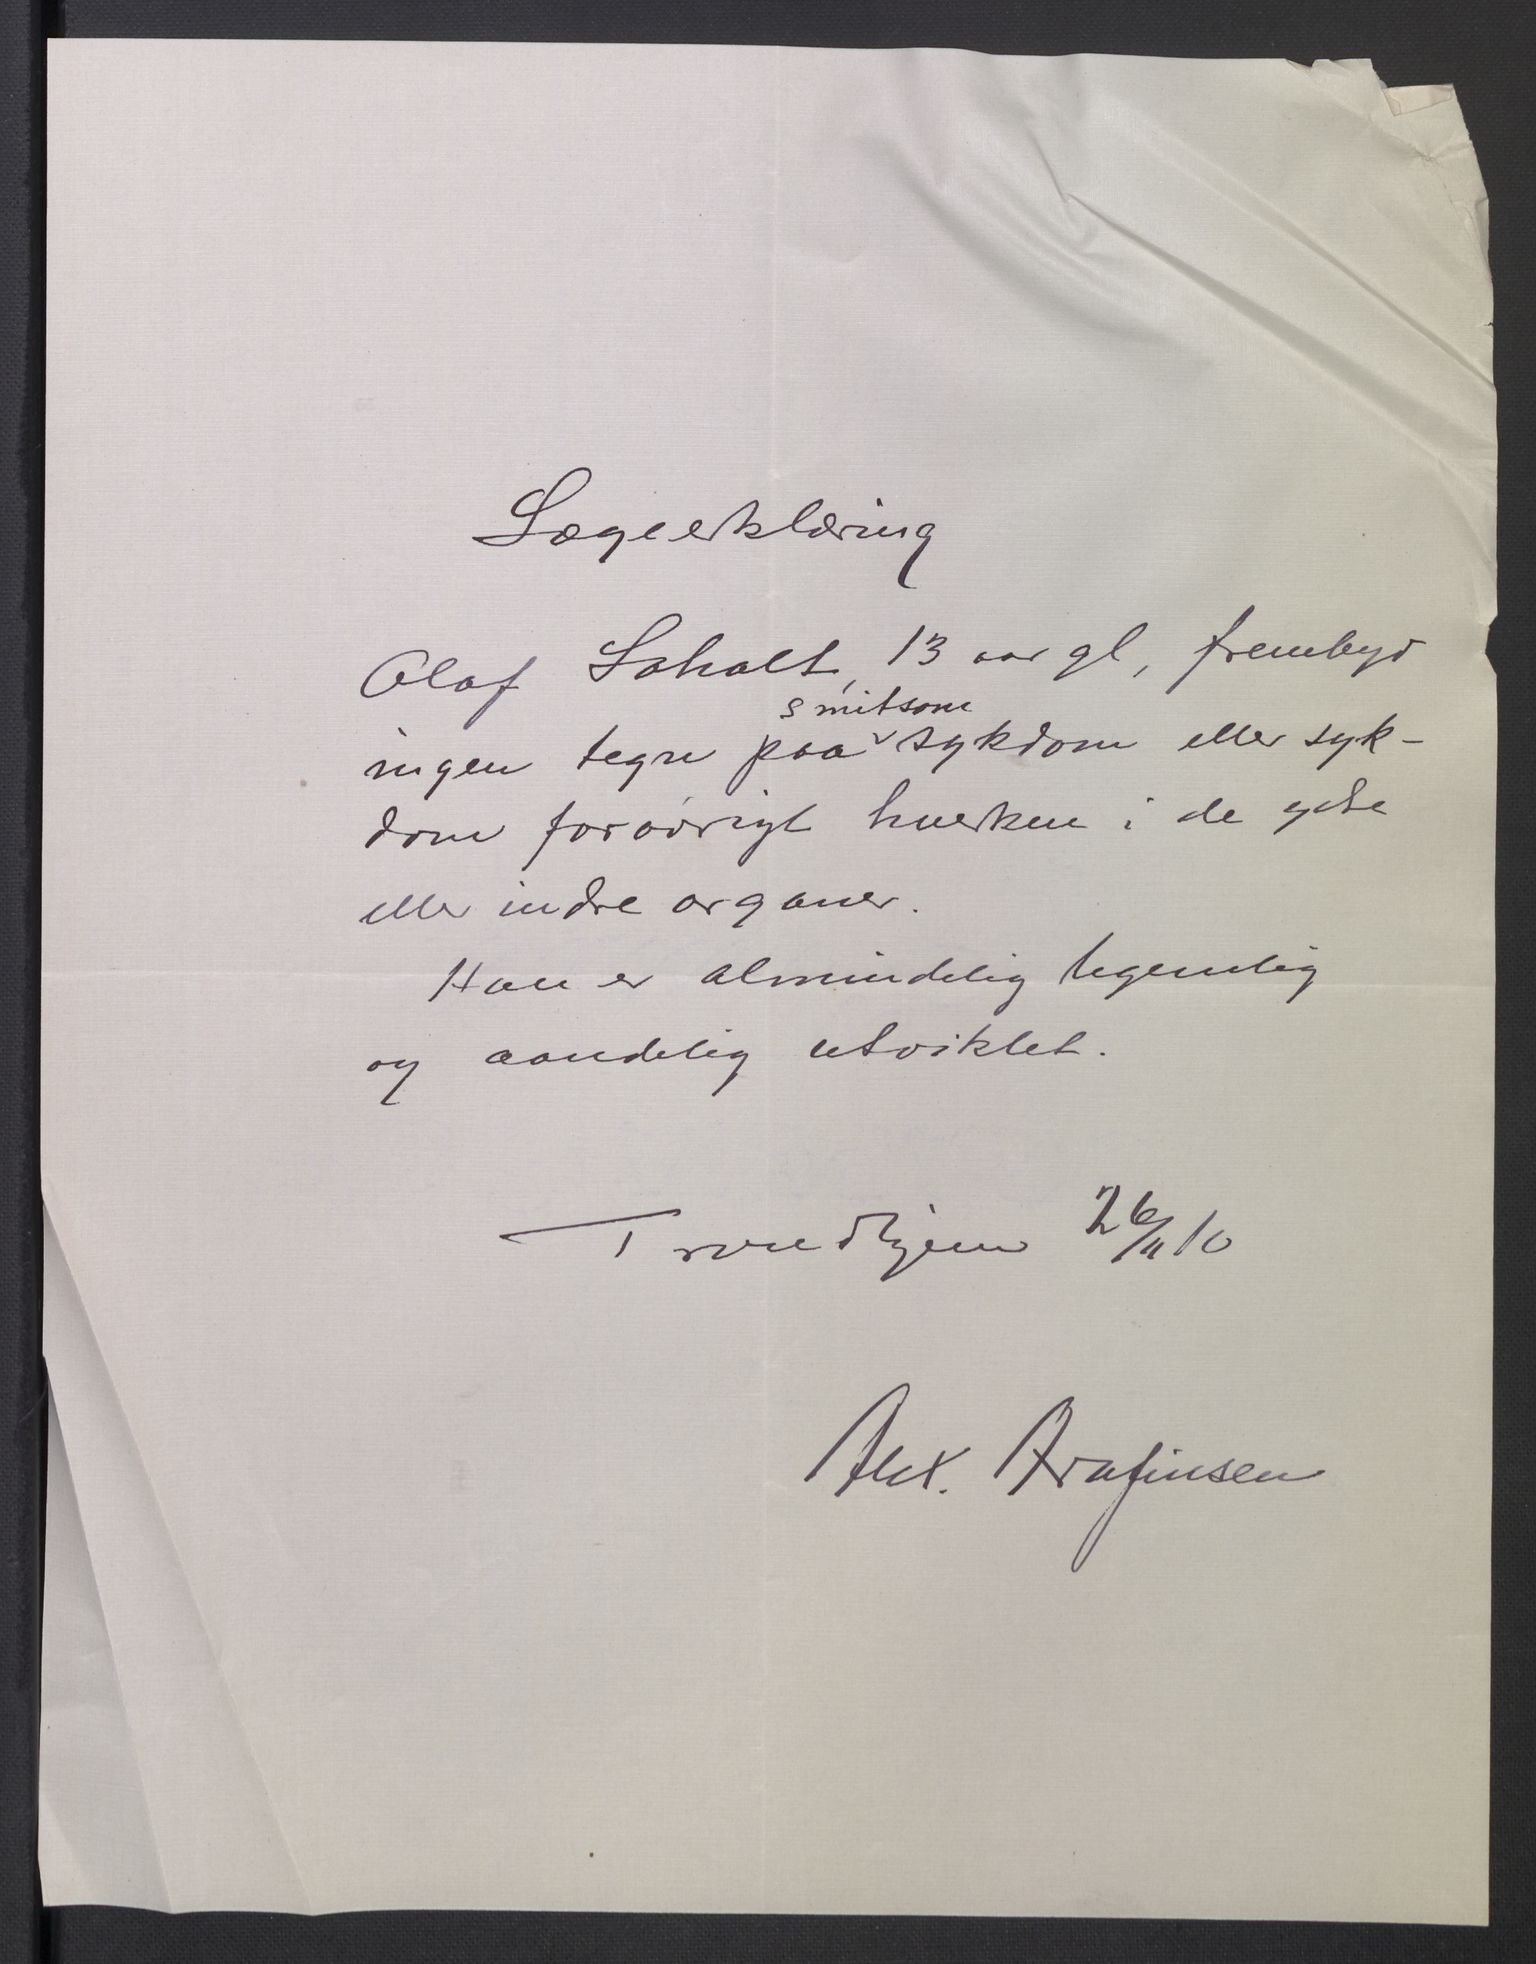 Lægeerklæring
Olaf Sakalt, 13 aar gl, frembyr
ingen tegn paa smitsom sykdom eller syk-
dom forøvrigt hverken i de ydre
eller indre organer.
Han er almindelig legemlig
og aandelig utviklet.
Trondhjem 26/11 10
Alex.